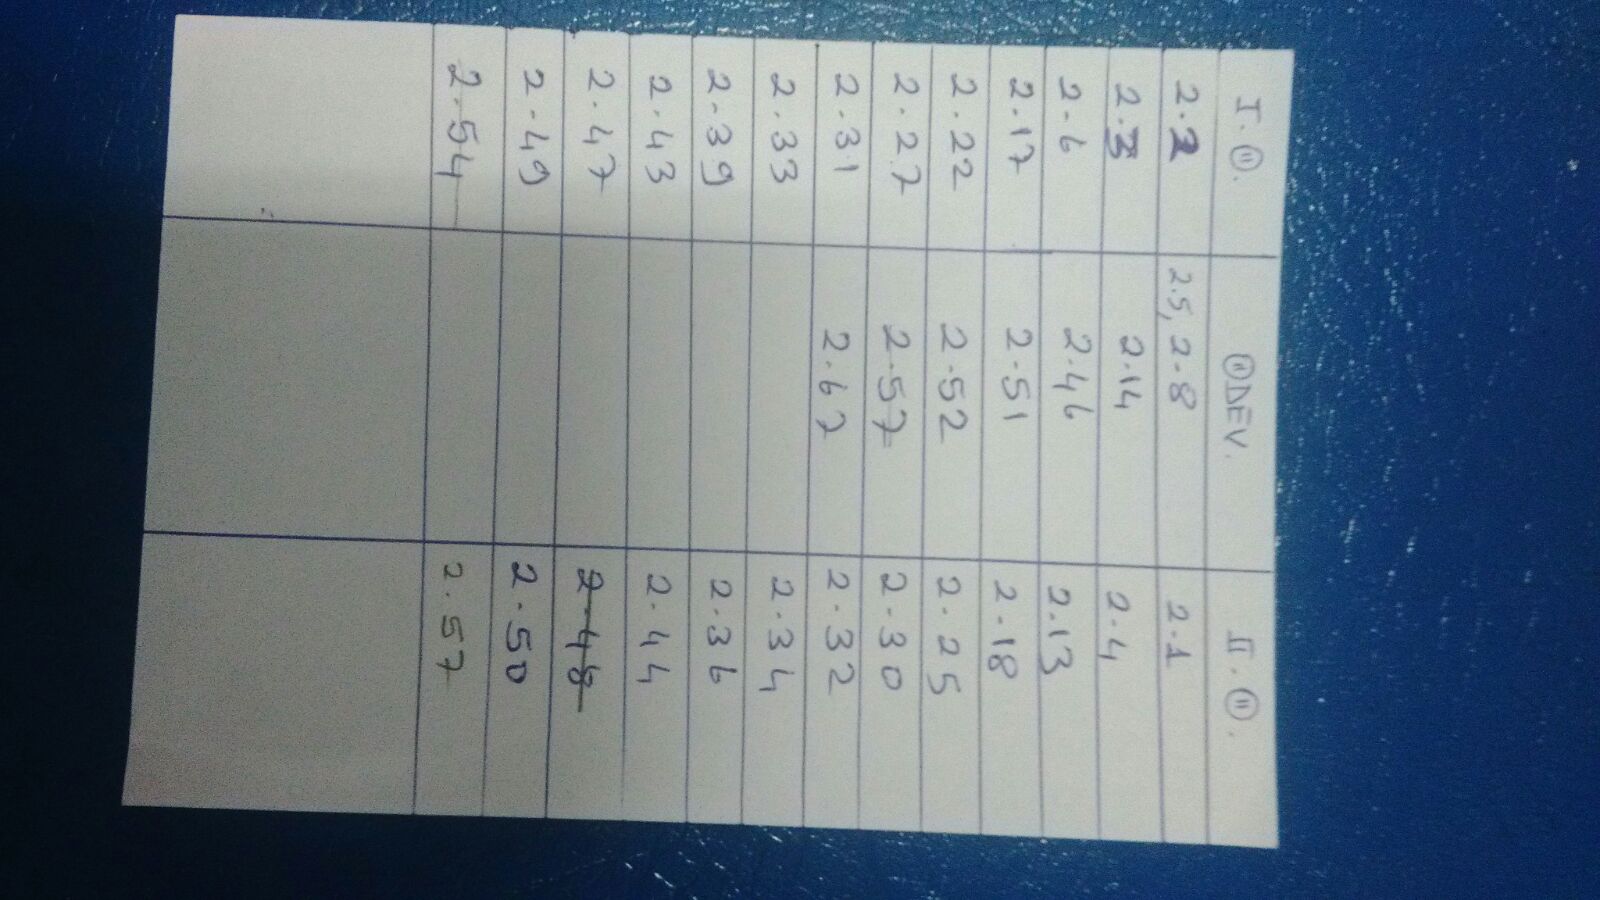 I. Ö. ÖDEV. II. Ö.
2.2 2.5, 2.8 2.1
2.3 2.14 2.4
2.6 2.46 2.13
2.17 2.51 2.18
2.22 2.52 2.25
2.27 2.57 2.30
2.31 2.67 2.32
2.33 2.34
2.39 2.36
2.43 2.44
2.47 2.48
2.49 2.50
2.54 2.57